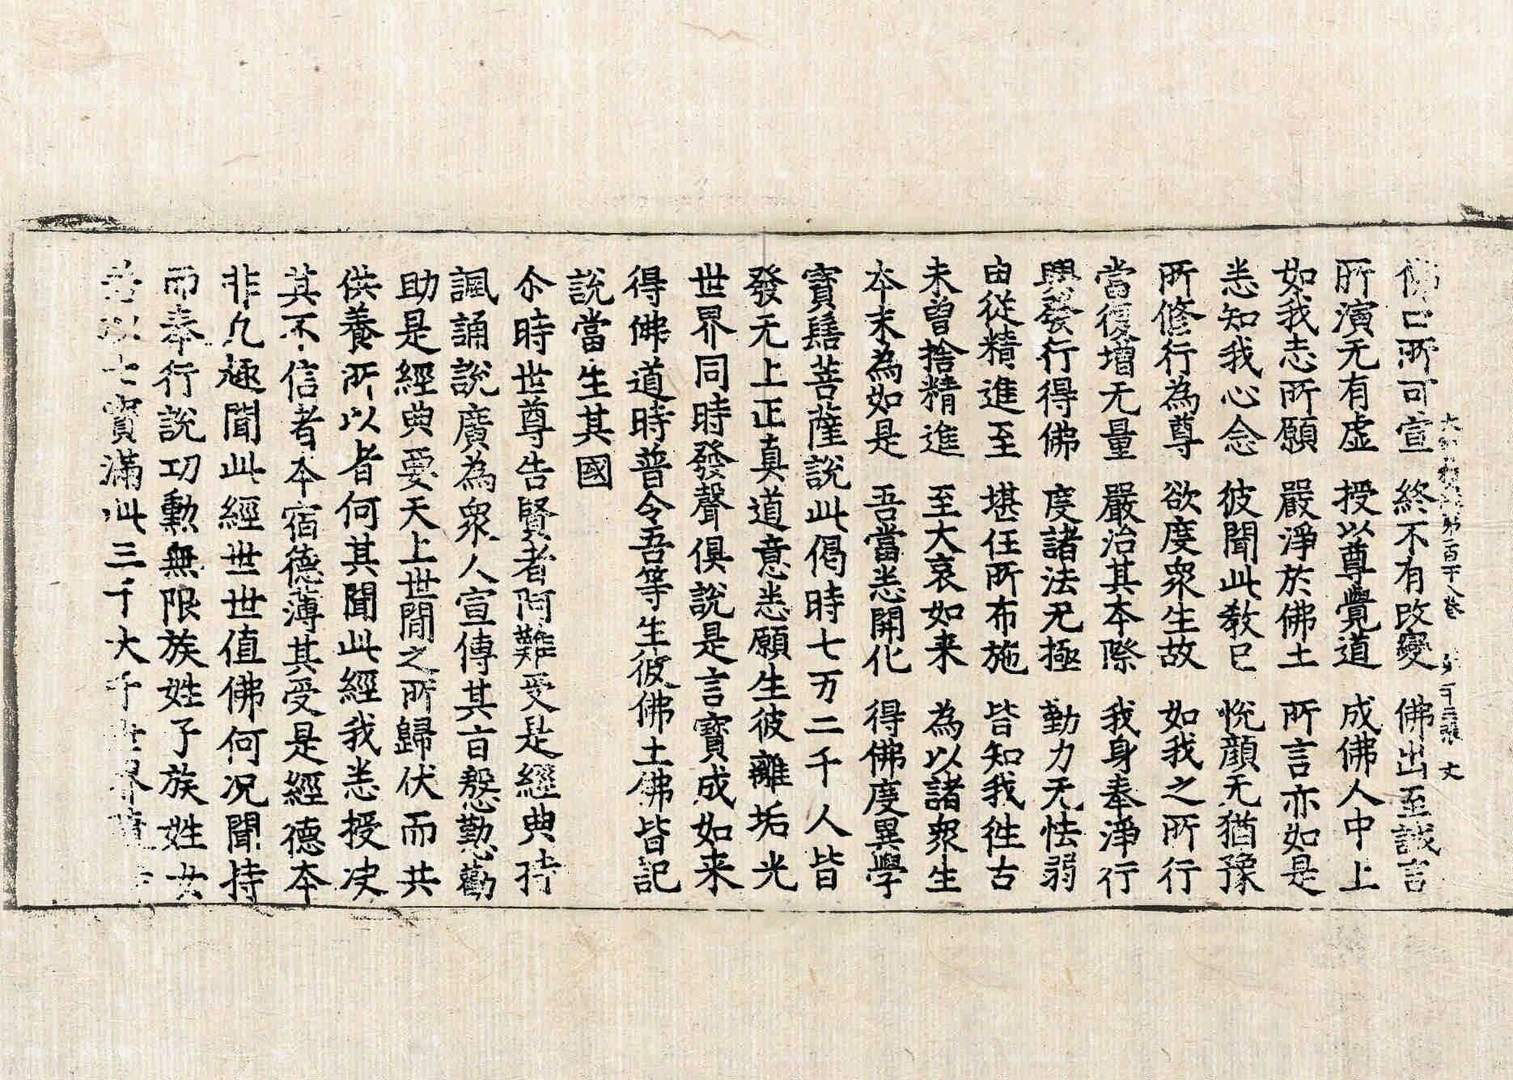 佛口所可宣　終不有改變　佛出至誠言
所演无有虛　授以尊覺道　成佛人中上
如我志所願　嚴淨於佛土　所言亦如是
悉知我心念　彼聞此教已　悅顔无猶豫
所修行為尊　欲度衆生故　如我之所行
當復增无量　嚴治其本際　我身奉淨行
興發行得佛　度諸法无極　勤力无怯弱
由從精進至　堪任所布施　皆知我往古
未曽捨精進　至大哀如来　為以諸衆生
本末為如是　吾當悉開化　得佛度異學
寶髻菩薩說此偈時七万二千人皆
發无上正真道意悉願生彼離垢光
世界同時發聲俱說是言寶成如来
得佛道時普令吾等生彼佛土佛皆記
說當生其國
尒時世尊告賢者阿難受是經典持
諷誦說廣為衆人宣傳其百慇懃勸
助是經典要天上世間之所歸伏而共
供養所以者何其聞此經我悉授决
其不信者本宿德薄其受是經德本
非凡極聞此經世世值佛何况聞持
而奉行說功勳無限族姓子族姓女
七寶滿此三千大千世界